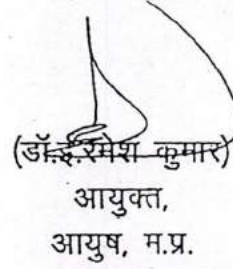 (डॉ.इ.रमेश कुमार)
आयुक्त,
आयुष, म.प्र.